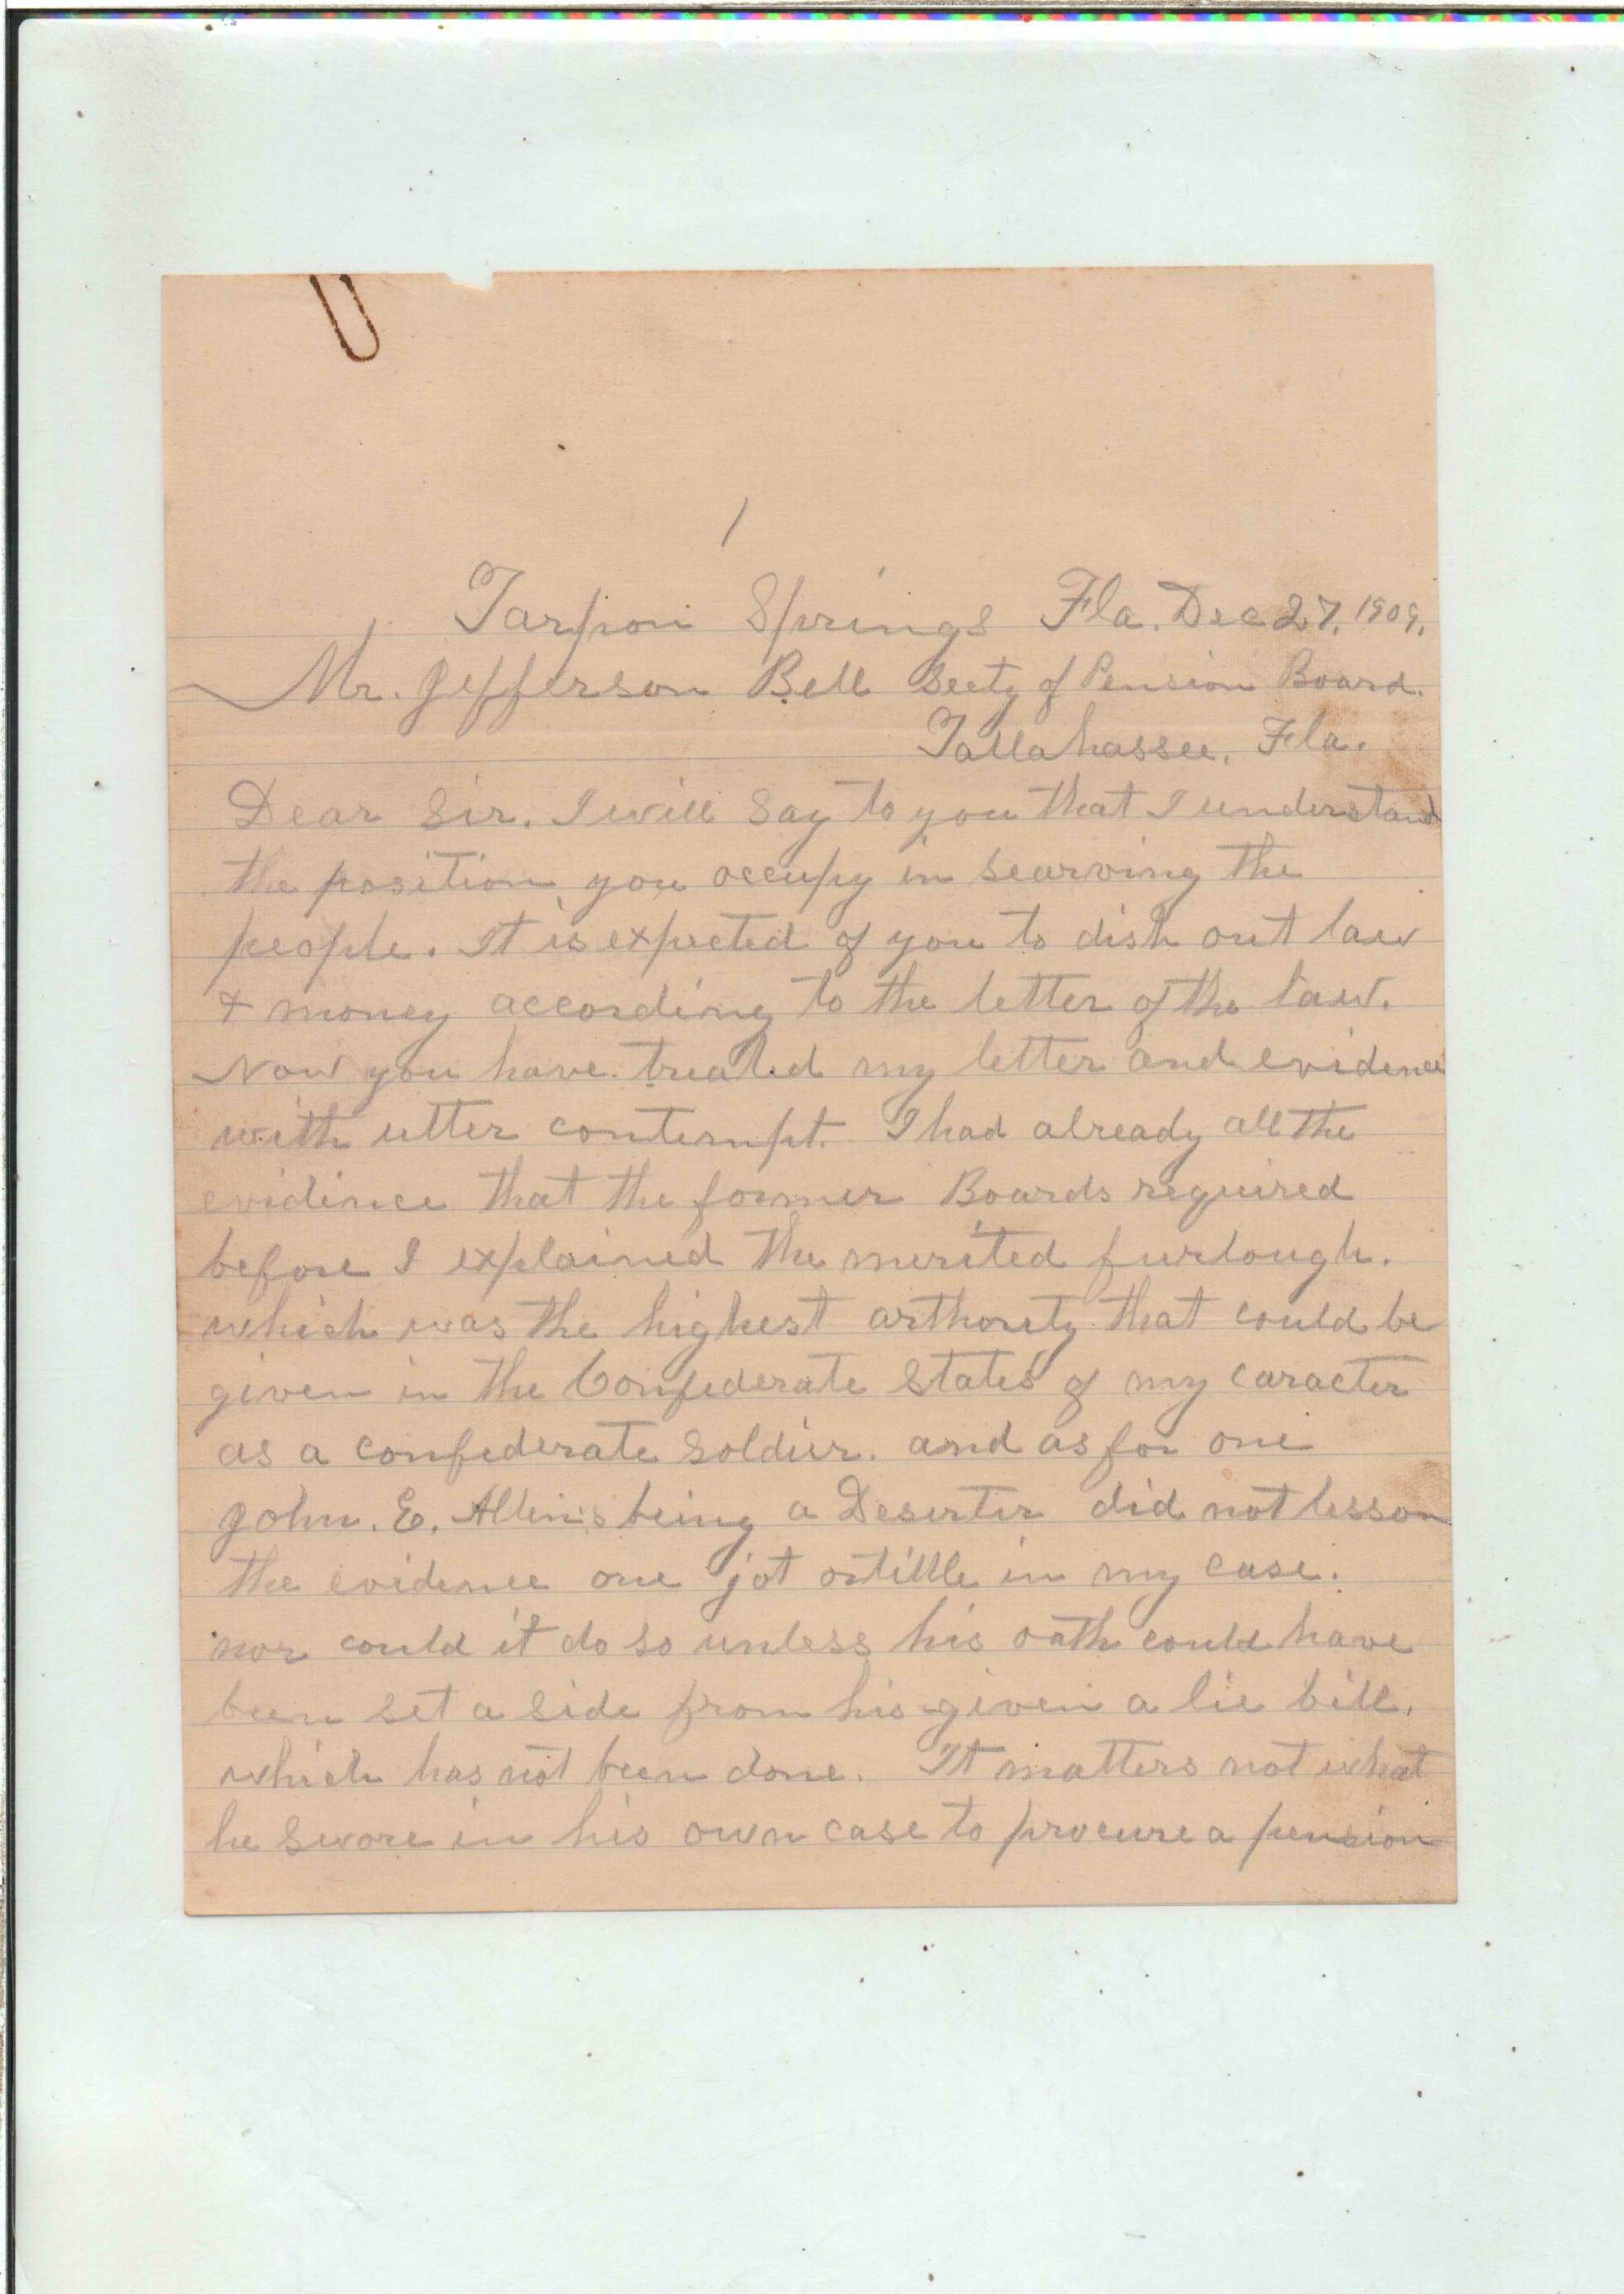 1
Tarpon Springs Fla. Dec 27, 1909.
Mr. Jefferson Bell Secty of Pension Board.
Tallahassee, Fla.
Dear Sir. I will say to you that I understand
the position you occupy in searving the
people. It is expected of you to dish out law
& money according to the letter of the law.
Now you have treated my letter and evidence
with utter contempt. I had already all the
evidince that the former Boards required
before I explained the merited furlough.
which was the highest arthority that could be
given in the Confederate States of my caracter
as a confederate soldier. and as for one
John. E. Allen's being a Deserter did not lesson
the evidence one jot or tittle in my case.
nor could it do so unless his oath could have
been set a side from his given a lie bill.
which has not been done. It matters not what
he swore in his own case to procure a pension